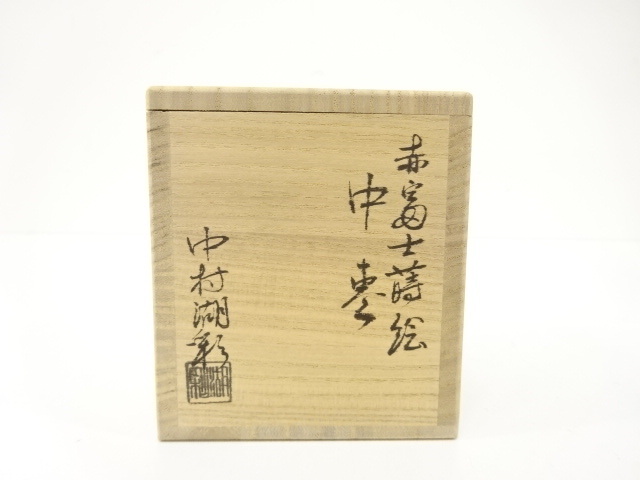 赤富士蒔絵
中棗
中村湖彩
湖彩